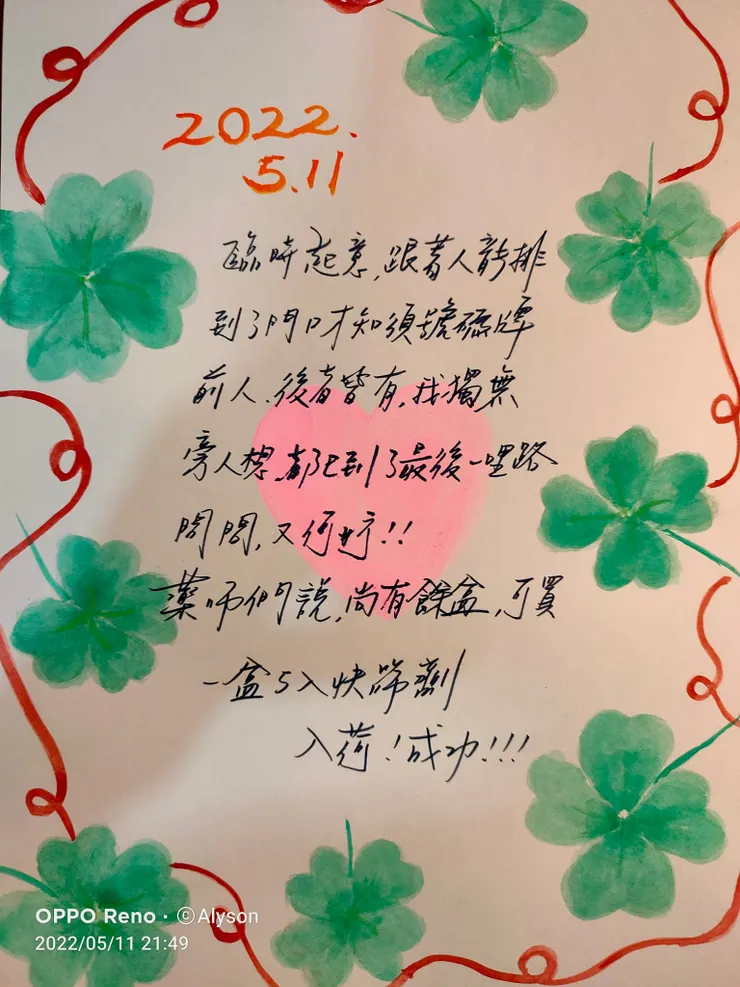 2022.
5.11
臨時起意,跟著人龍排
到了門口才知須號碼牌
前人、後者皆有,我獨無
旁人想,都已到了最後一哩路
問問,又何妨!!
藥師們說,尚有餘盒,可買
一盒5入快篩劑
入荷!成功!!!
OPPO Reno · ©Alyson
2022/05/11 21:49